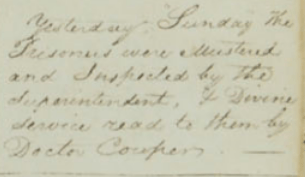 Yesterday Sunday the
Prisoners were Mustered
and Inspected by the
Superintendent, & Divine
service read to them by
Doctor Cowper. —